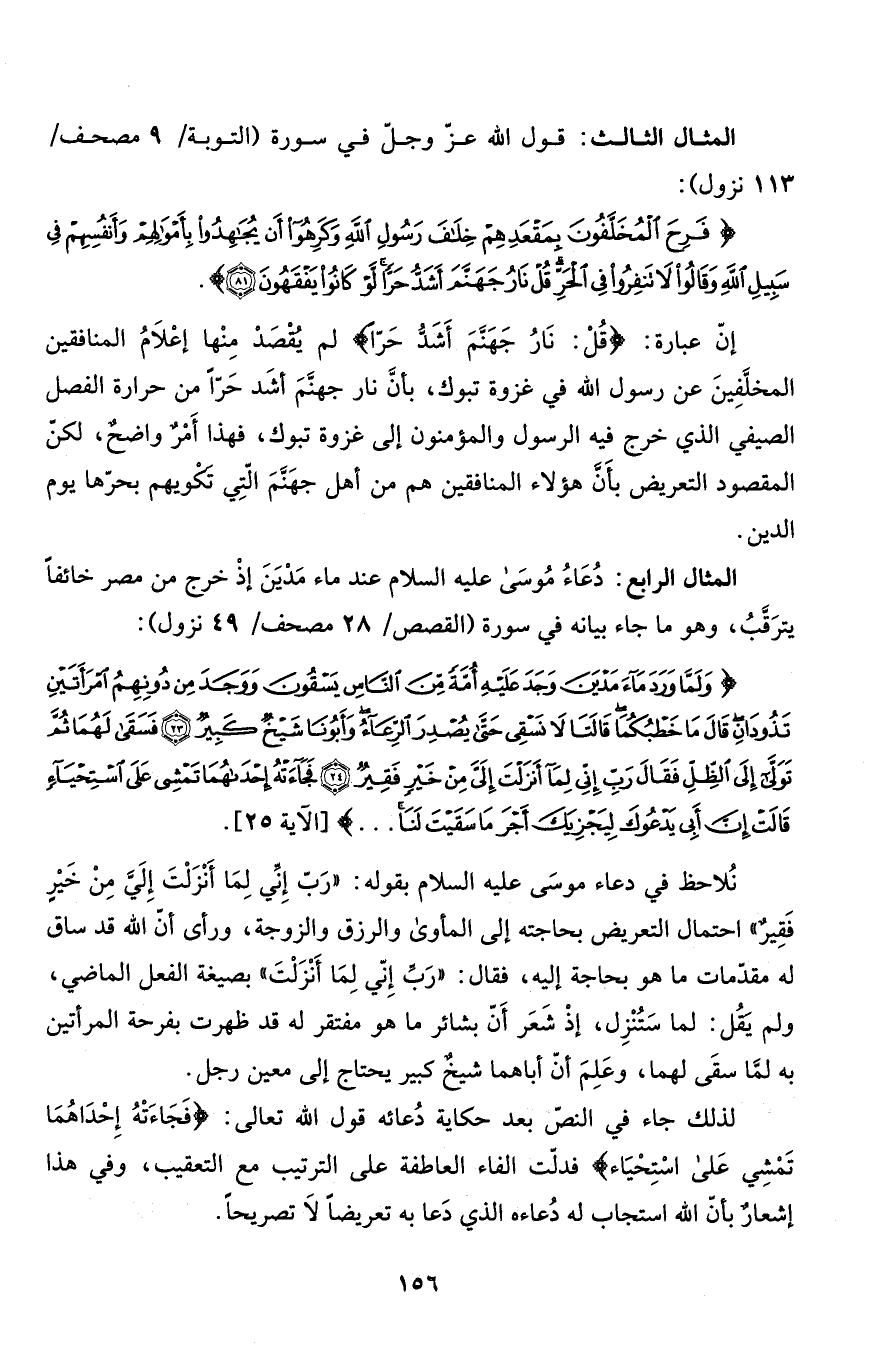 المثـال الثـالـث: قـول الله عـزّ وجـلّ فـي سـورة (التـوبـة/ ٩ مصحـف/
١١٣ نزول):
﴿ فَرِحَ ٱلْمُخَلَّفُونَ بِمَقْعَدِهِمْ خِلَٰفَ رَسُولِ ٱللَّهِ وَكَرِهُوٓا۟ أَن يُجَٰهِدُوا۟ بِأَمْوَٰلِهِمْ وَأَنفُسِهِمْ فِى
سَبِيلِ ٱللَّهِ وَقَالُوا۟ لَا تَنفِرُوا۟ فِى ٱلْحَرِّ ۗ قُلْ نَارُ جَهَنَّمَ أَشَدُّ حَرًّا ۚ لَّوْ كَانُوا۟ يَفْقَهُونَ ﴿٨١﴾ ﴾.
إنّ عبارة: ﴿قُلْ: نَارُ جَهَنَّمَ أَشَدُّ حَرّاً﴾ لم يُقْصَدْ مِنْها إعْلَامُ المنافقين
المخلَّفِينَ عن رسول الله في غزوة تبوك، بأنَّ نار جهنَّمَ أشَد حَرّاً من حرارة الفصل
الصيفي الذي خرج فيه الرسول والمؤمنون إلى غزوة تبوك، فهذا أَمْرٌ واضحٌ، لكنّ
المقصود التعريض بأَنَّ هؤلاء المنافقين هم من أهل جهَنَّمَ الّتِي تَكْويهم بحرّها يوم
الدين.
المثال الرابع: دُعَاءُ مُوسَىٰ عليه السلام عند ماء مَدْيَنَ إذْ خرج من مصر خائفاً
يترَقَّبُ، وهو ما جاء بيانه في سورة (القصص/ ٢٨ مصحف/ ٤٩ نزول):
﴿ وَلَمَّا وَرَدَ مَآءَ مَدْيَنَ وَجَدَ عَلَيْهِ أُمَّةً مِّنَ ٱلنَّاسِ يَسْقُونَ وَوَجَدَ مِن دُونِهِمُ ٱمْرَأَتَيْنِ
تَذُودَانِ ۖ قَالَ مَا خَطْبُكُمَا ۖ قَالَتَا لَا نَسْقِى حَتَّىٰ يُصْدِرَ ٱلرِّعَآءُ ۖ وَأَبُونَا شَيْخٌ كَبِيرٌ ﴿٢٣﴾ فَسَقَىٰ لَهُمَا ثُمَّ
تَوَلَّىٰٓ إِلَى ٱلظِّلِّ فَقَالَ رَبِّ إِنِّى لِمَآ أَنزَلْتَ إِلَىَّ مِنْ خَيْرٍ فَقِيرٌ ﴿٢٤﴾ فَجَآءَتْهُ إِحْدَىٰهُمَا تَمْشِى عَلَى ٱسْتِحْيَآءٍ
قَالَتْ إِنَّ أَبِى يَدْعُوكَ لِيَجْزِيَكَ أَجْرَ مَا سَقَيْتَ لَنَا ۚ . . . ﴾ [الآية ٢٥].
نُلاحظ في دعاء موسَى عليه السلام بقوله: «رَبّ إِنِّي لِمَا أَنْزَلْتَ إِلَيَّ مِنْ خَيْرٍ
فَقِيرٌ» احتمال التعريض بحاجته إلى المأوىٰ والرزق والزوجة، ورأى أنّ الله قد ساق
له مقدّمات ما هو بحاجة إليه، فقال: «رَبِّ إنّي لِمَا أَنْزَلْتَ» بصيغة الفعل الماضي،
ولم يَقُل: لما سَتُنْزِل، إذْ شَعَر أَنّ بشائر ما هو مفتقر له قد ظهرت بفرحة المرأتين
به لمَّا سقَى لهما، وعَلِمَ أنّ أباهما شيخٌ كبير يحتاج إلى معين رجل.
لذلك جاء في النصّ بعد حكاية دُعائه قول الله تعالى: ﴿فَجَاءَتْهُ إِحْدَاهُمَا
تَمْشِي عَلىٰ اسْتِحْيَاء﴾ فدلّت الفاء العاطفة على الترتيب مع التعقيب، وفي هذا
إشعارٌ بأنّ الله استجاب له دُعاءه الذي دَعا به تعريضاً لَا تصريحاً.
١٥٦